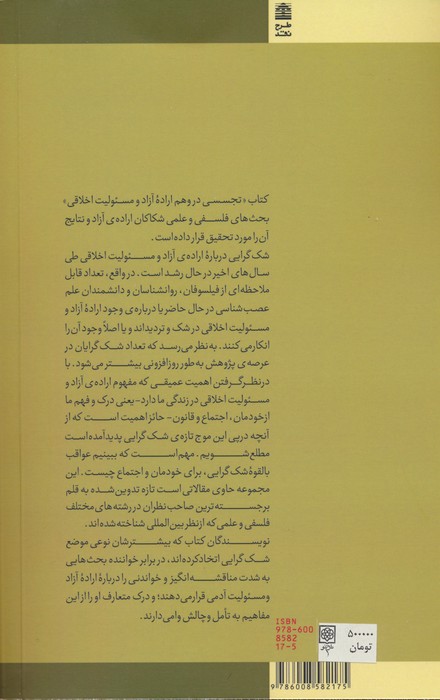 طرح
نقد
کتاب «تجسسی در وهم ارادهٔ آزاد و مسئولیت اخلاقی»
بحث‌های فلسفی و علمی شکاکان اراده‌ی آزاد و نتایج
آن را مورد تحقیق قرار داده است.
شک‌گرایی دربارهٔ اراده‌ی آزاد و مسئولیت اخلاقی طی
سال‌های اخیر در حال رشد است. در واقع، تعداد قابل
ملاحظه‌ای از فیلسوفان، روانشناسان و دانشمندان علم
عصب‌شناسی در حال حاضر یا درباره‌ی وجود ارادهٔ آزاد و
مسئولیت اخلاقی در شک و تردیداند و یا اصلاً وجود آن را
انکار می‌کنند. به نظر می‌رسد که تعداد شک‌گرایان در
عرصه‌ی پژوهش به طور روزافزونی بیشتر می‌شود. با
در نظر گرفتن اهمیت عمیقی که مفهوم اراده‌ی آزاد و
مسئولیت اخلاقی در زندگی ما دارد-یعنی درک و فهم ما
از خودمان، اجتماع و قانون- حائز اهمیت است که از
آنچه در پی این موج تازه‌ی شک‌گرایی پدید آمده است
مطلع شویم. مهم است که ببینیم عواقب
بالقوهٔ شک‌گرایی، برای خودمان و اجتماع چیست. این
مجموعه حاوی مقالاتی است تازه تدوین شده به قلم
برجسته‌ترین صاحب‌نظران در رشته‌های مختلف
فلسفی و علمی که از نظر بین‌المللی شناخته شده‌اند.
نویسندگان کتاب که بیشترشان نوعی موضع
شک‌گرایی اتخاد کرده‌اند، در برابر خواننده بحث‌هایی
به شدت مناقشه‌انگیز و خواندنی را دربارهٔ ارادهٔ آزاد
و مسئولیت آدمی قرار می‌دهند؛ و درک متعارف او را از این
مفاهیم به تأمل و چالش وامی‌دارند.
ISBN
978-600
8582
17-5
۵۰۰۰۰۰
تومان
9 786008 582175